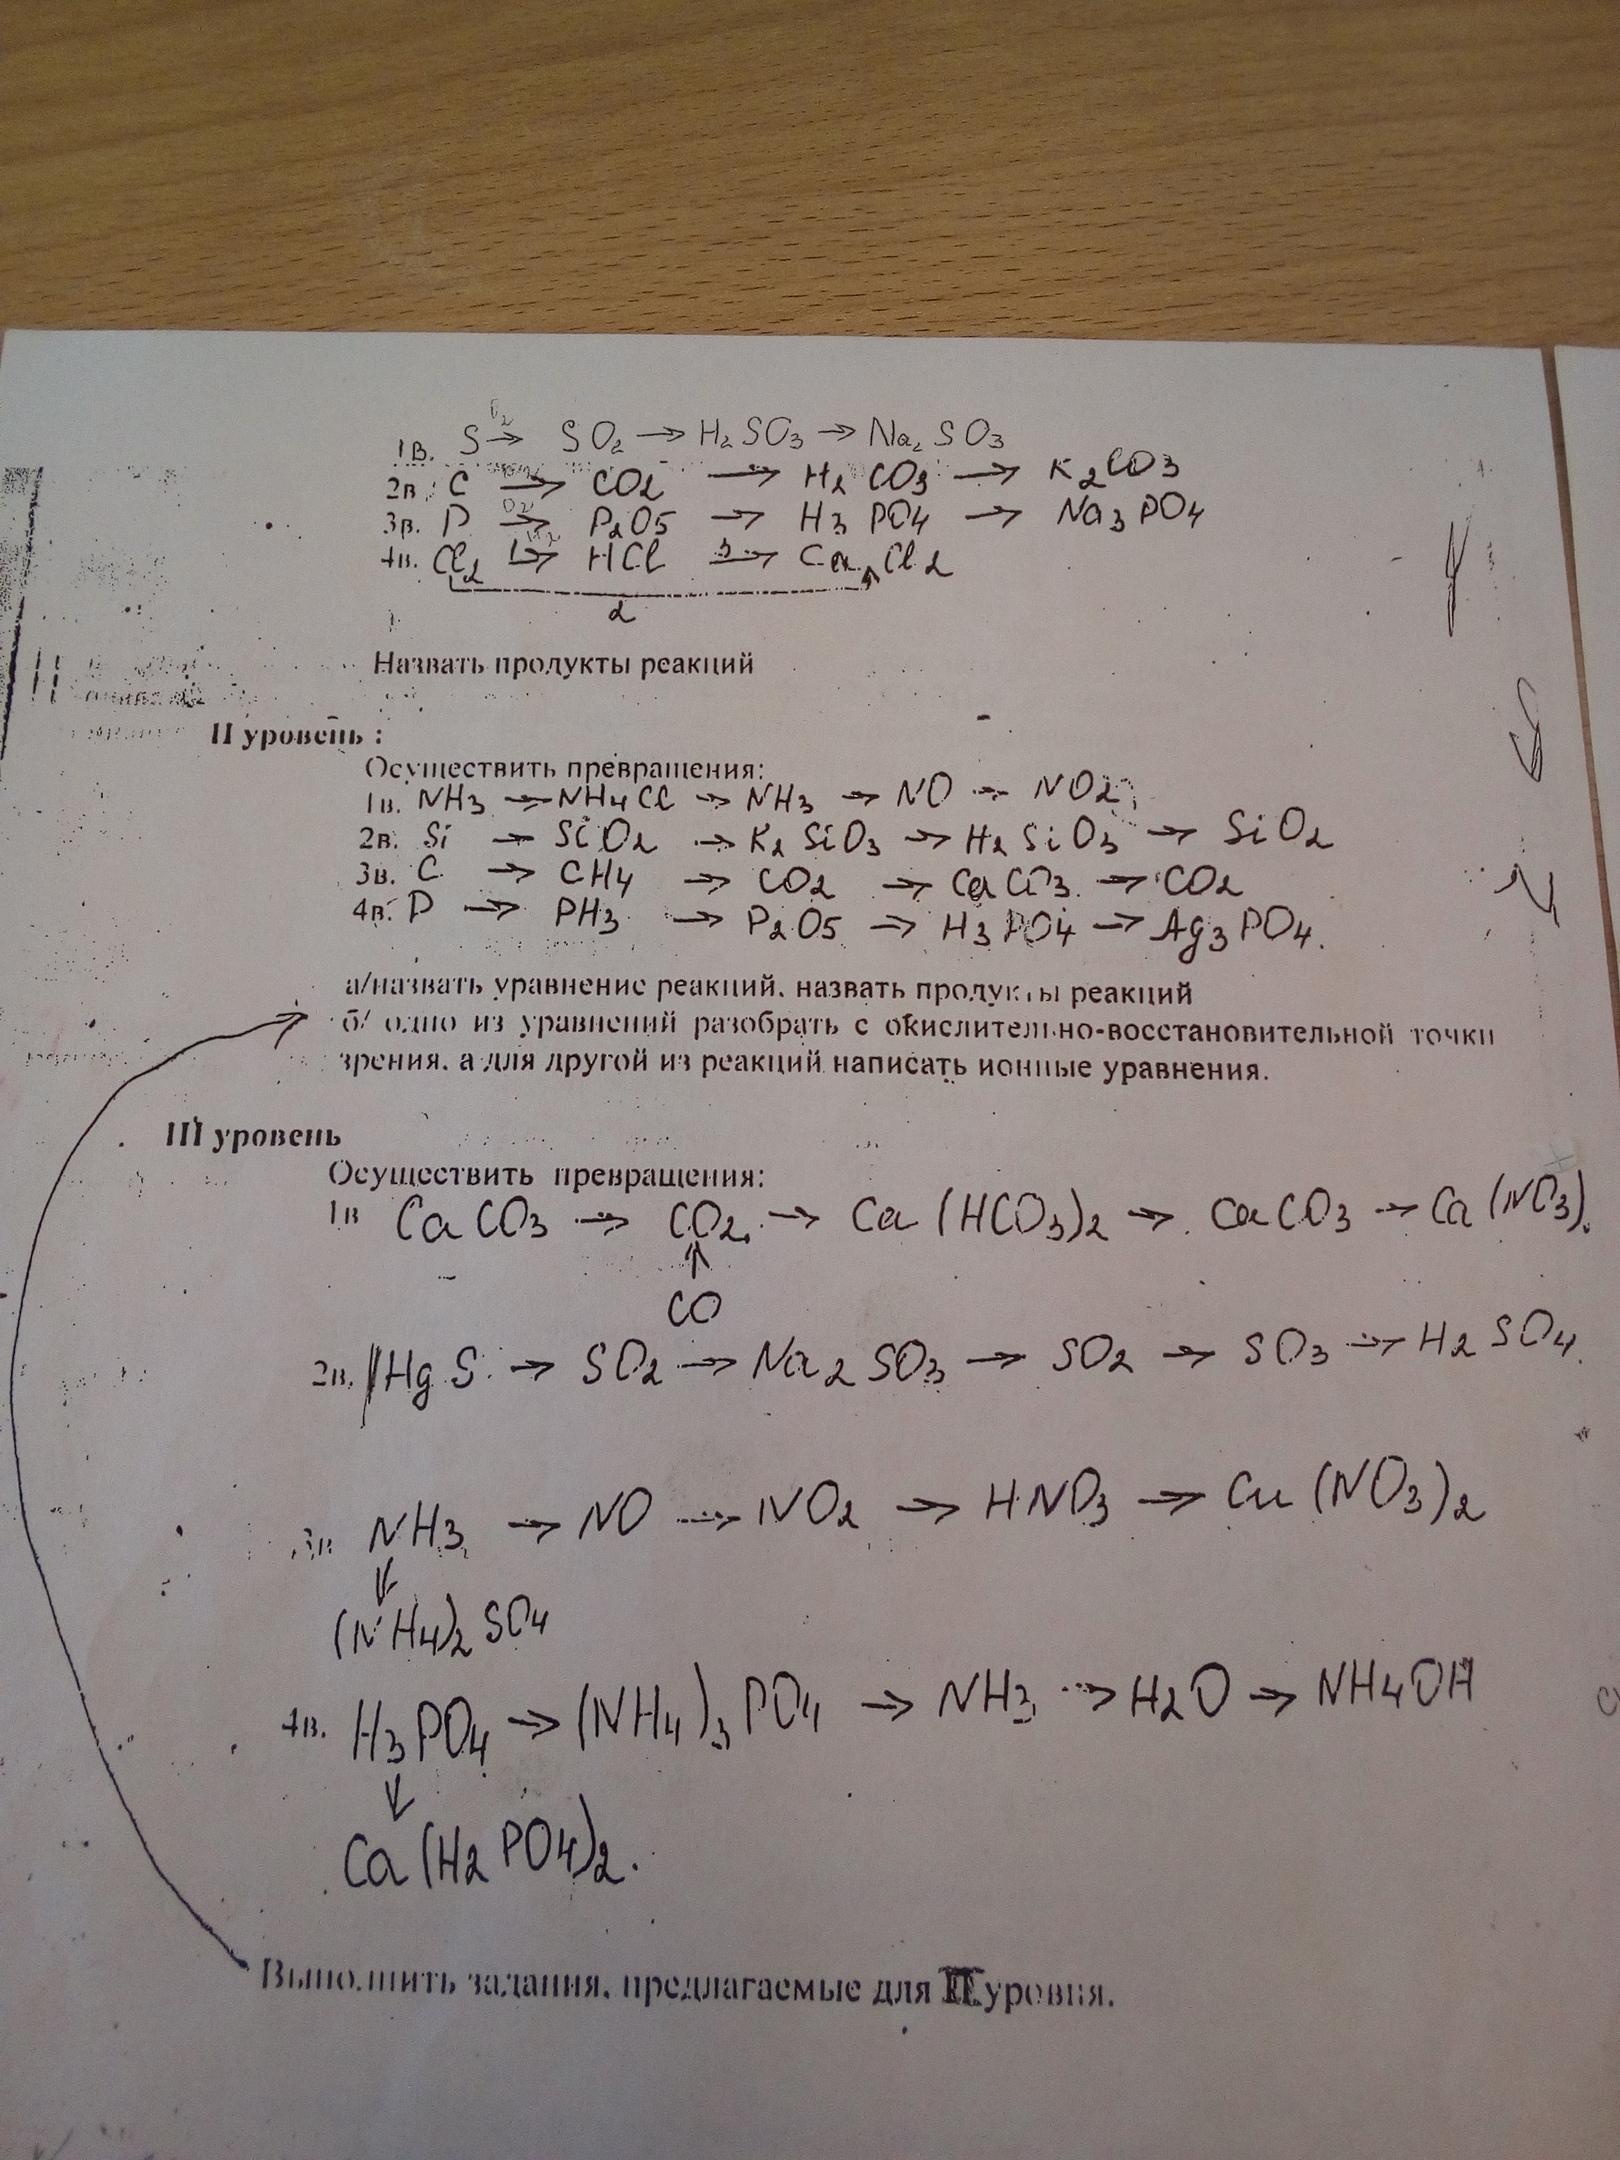 1В. S →O2 SO2 → H2SO3 → Na2SO3
2В. C → CO2 → H2CO3 → K2CO3
3В. P →O2 P2O5 → H3PO4 → Na3PO4
4В. Cl2 1→ HCl 3→ CaCl2
2
Назвать продукты реакций
II уровень :
Осуществить превращения:
1в. NH3 → NH4Cl → NH3 → NO → NO2
2в. Si → SiO2 → K2SiO3 → H2SiO3 → SiO2
3в. C → CH4 → CO2 → CaCO3 → CO2
4в. P → PH3 → P2O5 → H3PO4 → Ag3PO4.
а/назвать уравнение реакций, назвать продукты реакций
б/ одно из уравнений разобрать с окислительно-восстановительной точки
зрения, а для другой из реакций написать ионные уравнения.
III уровень
Осуществить превращения:
1в CaCO3 → CO2 → Ca(HCO3)2 → CaCO3 → Ca(NO3)2
↑
CO
2в. HgS → SO2 → Na2SO3 → SO2 → SO3 → H2SO4.
3в NH3 → NO → NO2 → HNO3 → Cu(NO3)2
↓
(NH4)2SO4
4в. H3PO4 → (NH4)3PO4 → NH3 → H2O → NH4OH
↓
Ca(H2PO4)2.
Выполнить задания, предлагаемые для II уровня.